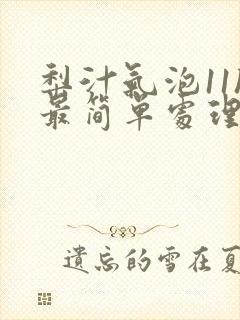 梨汁氣泡11
最簡單處理
遺忘的雪在夏